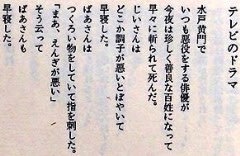 テレビのドラマ
水戸黄門で
いつも悪役をする俳優が
今夜は珍しく善良な百姓になって
早々に斬られて死んだ。
じいさんは
どこか調子が悪いとぼやいて
早寝した。
ばあさんは
つくろい物をしていて指を刺した。
「まあ、えんぎが悪い」
そう云って
ばあさんも
早寝した。